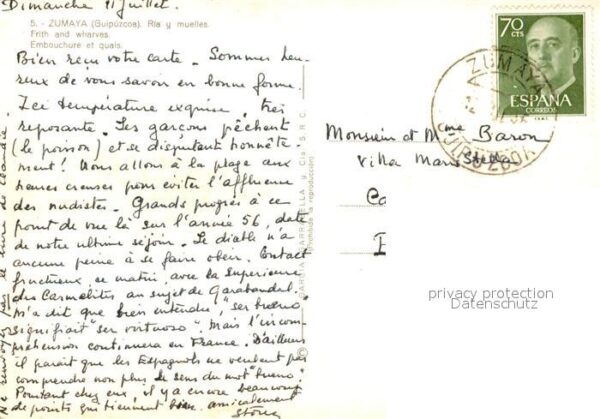 Dimanche 11 Juillet.
5. - ZUMAYA (Guipúzcoa). Ría y muelles.
Frith and wharves.
Embouchure et quais.
Bien reçu votre carte. Sommes heu-
reux de vous savoir en bonne forme.
Ici température exquise, très
reposante. Les garçons pêchent
(le poisson) et se disputent honnête-
ment! Nous allons à la plage aux
heures creuses pour éviter l'affluence
des nudistes. Grands progrès à ce
point de vue là sur l'année 56, date
de notre ultime séjour. Le diable n'a
aucune peine à se faire obéir. Contact
fructueux, ce matin, avec la Supérieure
des Carmélites au sujet de Garabandal.
M'a dit que bien entendu, "ser bueno"
signifiait "ser virtuoso". Mais l'incom-
préhension continuera en France. D'ailleurs
il paraît que les Espagnols ne veulent pas
comprendre non plus le sens du mot "bueno".
Pourtant chez eux, il y a encore beaucoup
de points qui tiennent bien. amicalement
Ne renvoyez pas le livre de Claudie.
GARCIA GARRABELLA y Cía. S.R.C.
(Prohibida la reproducción)
70 CTS
ESPAÑA
CORREOS
ZUMAYA
GUIPUZCOA
Monsieur et Mme Baron
Villa Maris Stella
privacy protection
Datenschutz